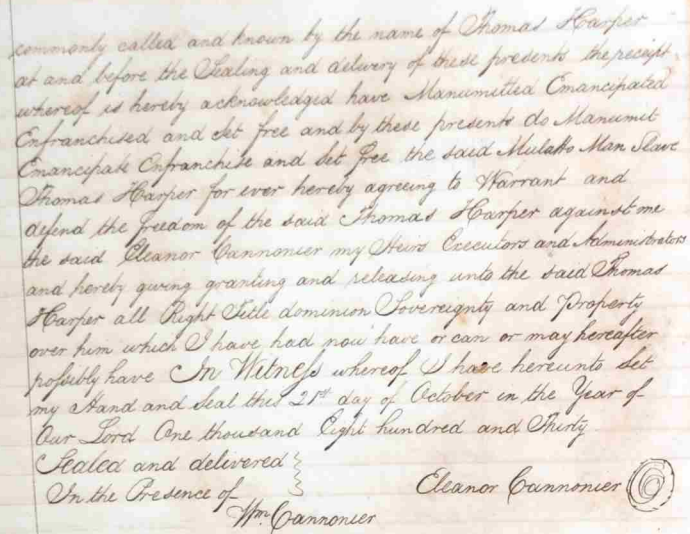 commonly called and known by the name of Thomas Harper
at and before the Sealing and delivery of these presents the receipt
whereof is hereby acknowledged have Manumitted Emancipated
Enfranchised and Set free and by these presents do Manumit
Emancipate Enfranchise and Set free the said Mulatto Man Slave
Thomas Harper for ever hereby agreeing to Warrant and
defend the freedom of the said Thomas Harper against me
the said Eleanor Cannonier my Heirs Executors and Administrators
and hereby giving granting and releasing unto the said Thomas
Harper all Right Title dominion Sovereignty and Property
over him which I have had now have or can or may hereafter
possibly have In Witness whereof I have hereunto Set
my Hand and Seal this 21st day of October in the Year of
Our Lord One thousand Eight hundred and Thirty
Sealed and delivered
In the Presence of
Eleanor Cannonier
Wm. Cannonier